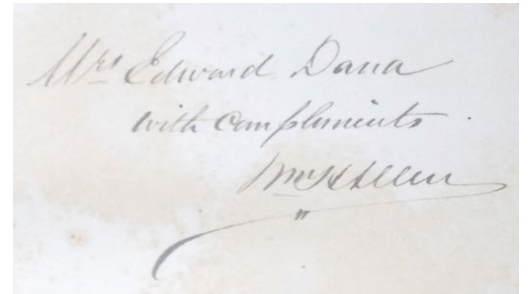 Mrs Edward Dana
with compliments.
Wm H Allen